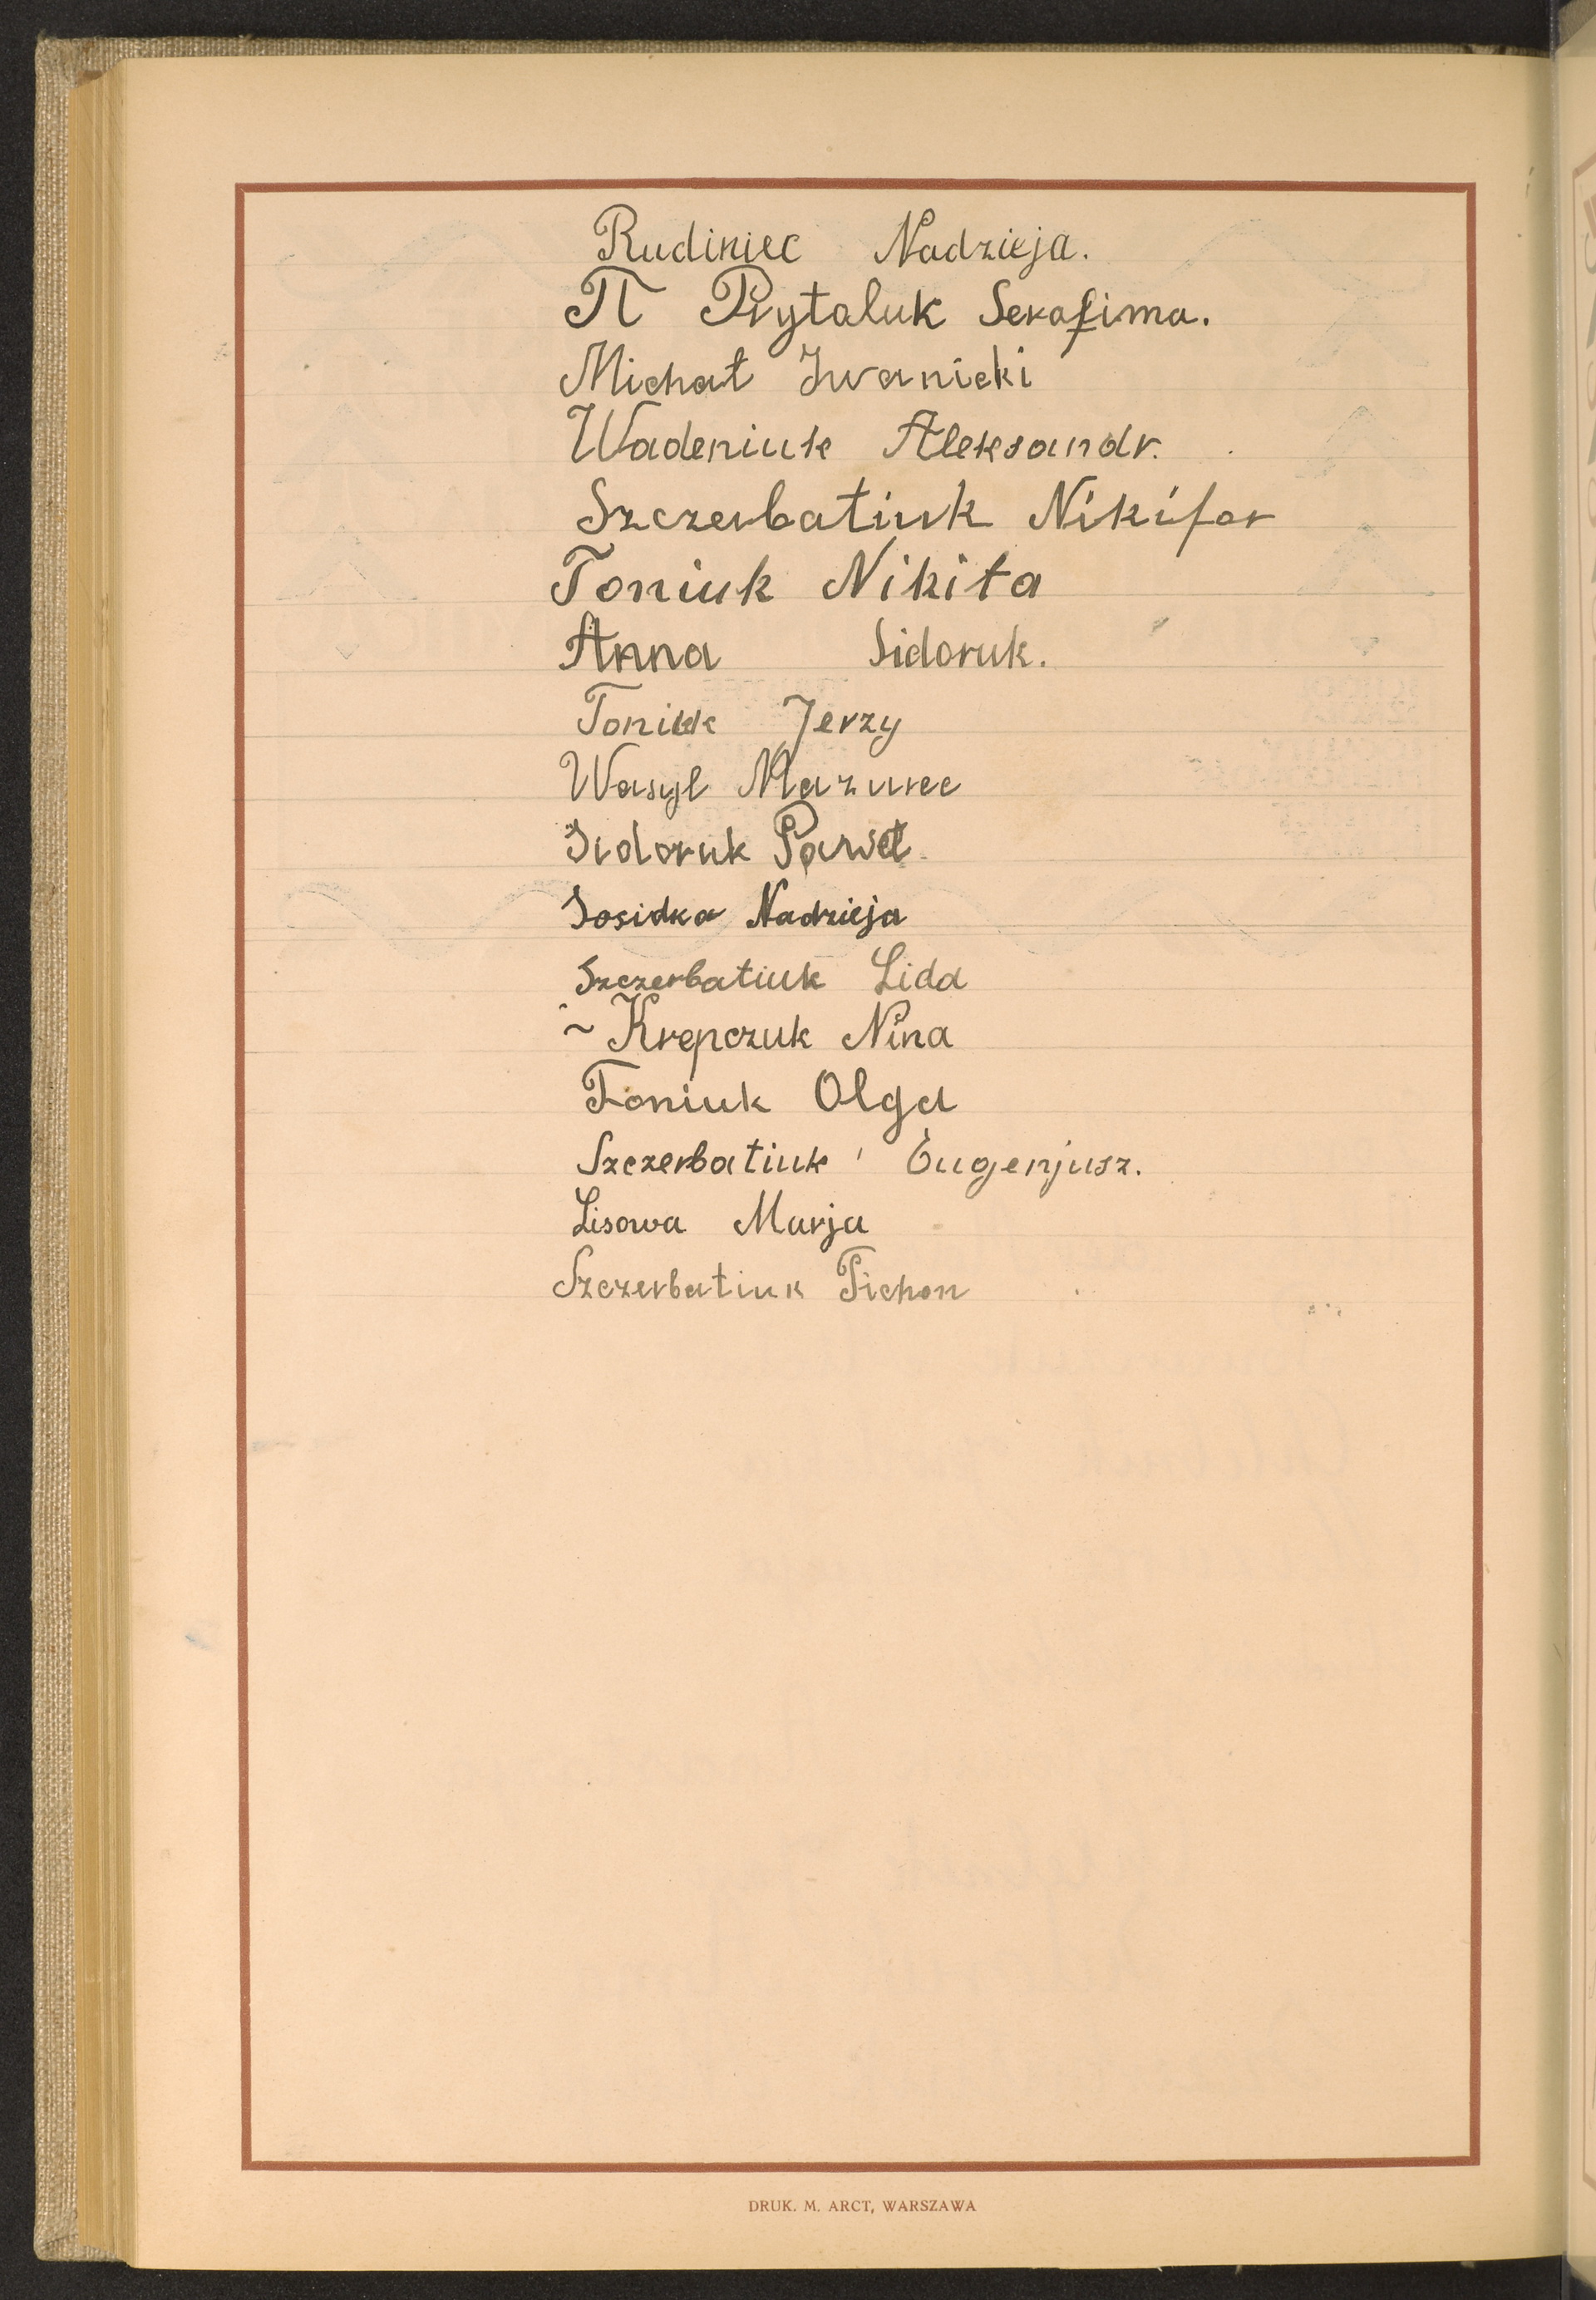 Rudiniec Nadzieja.
П Prytaluk Serafima.
Michał Iwanicki
Wadeniuk Aleksandr.
Szczerbatiuk Nikifor
Toniuk Nikita
Anna Sidoruk.
Toniuk Jerzy
Wasyl Mazurec
Sidoruk Paweł.
Sosidka Nadzieja
Szczerbatiuk Lida
~ Krepczuk Nina
Toniuk Olga
Szczerbatiuk Eugenjusz.
Lisowa Marja
Szczerbatiuk Tichon
DRUK. M. ARCT, WARSZAWA